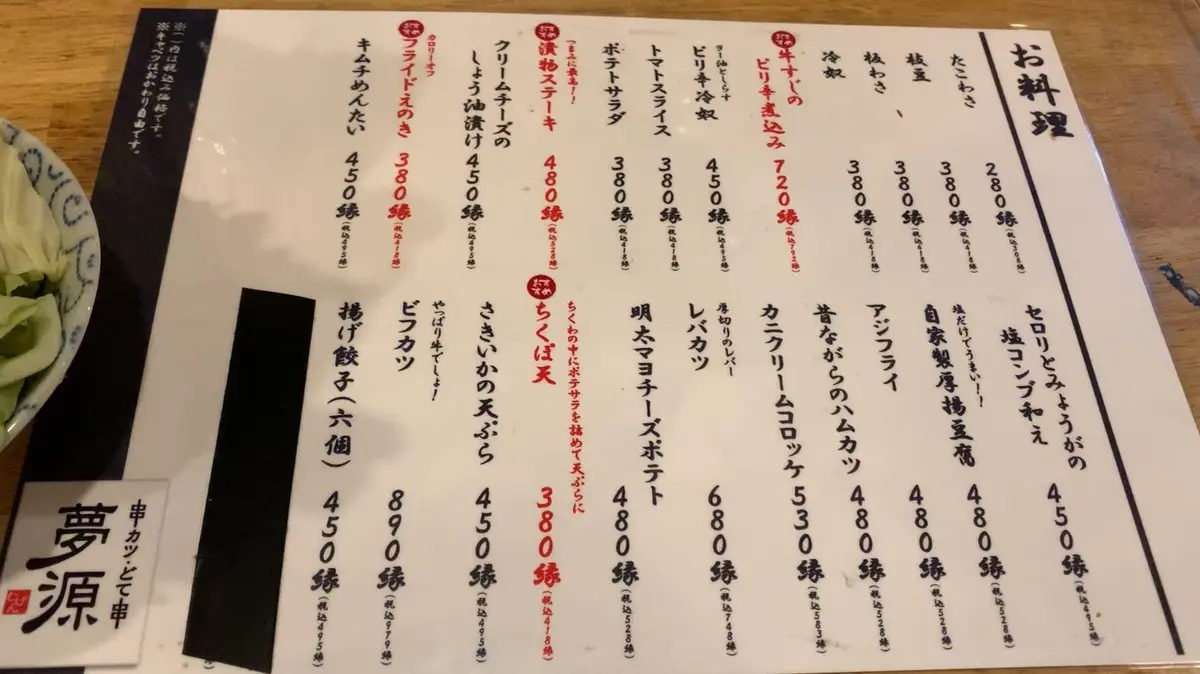 お料理
たこわさ 280縁(税込308縁)
枝豆 380縁(税込418縁)
板わさ 380縁(税込418縁)
冷奴 380縁(税込418縁)
おすすめ
牛すじの
ピリ辛煮込み 720縁(税込792縁)
ラー油としらす
ピリ辛冷奴 450縁(税込495縁)
トマトスライス 380縁(税込418縁)
ポテトサラダ 380縁(税込418縁)
つまみに最高!!
おすすめ
漬物ステーキ 480縁(税込528縁)
クリームチーズの
しょう油漬け 450縁(税込495縁)
カロリーオフ
おすすめ
フライドえのき 380縁(税込418縁)
キムチめんたい 450縁(税込495縁)
セロリとみょうがの
塩コンブ和え 450縁(税込495縁)
塩だけでうまい!!
自家製厚揚豆腐 480縁(税込528縁)
アジフライ 480縁(税込528縁)
昔ながらのハムカツ 480縁(税込528縁)
カニクリームコロッケ 530縁(税込583縁)
厚切りのレバー
レバカツ 680縁(税込748縁)
明太マヨチーズポテト 480縁(税込528縁)
ちくわの中にポテサラを詰めて天ぷらに
おすすめ
ちくぽ天 380縁(税込418縁)
さきいかの天ぷら 450縁(税込495縁)
やっぱり牛でしょ!
ビフカツ 890縁(税込979縁)
揚げ餃子(六個) 450縁(税込495縁)
※( )内は税込み価格です。
※キャベツはおかわり自由です。
串カツ・どて串
夢源
むげん